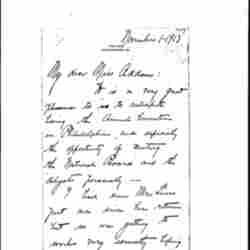 November 1-1913
My dear Miss Addams:
It is a very great
pleasure to us to anticipate
having the Annual Convention
in Philadelphia, and especially
the opportunity of meeting
the National Board and the
delegates personally —
I have seen Mrs
just once since her return
but we are getting to
work very